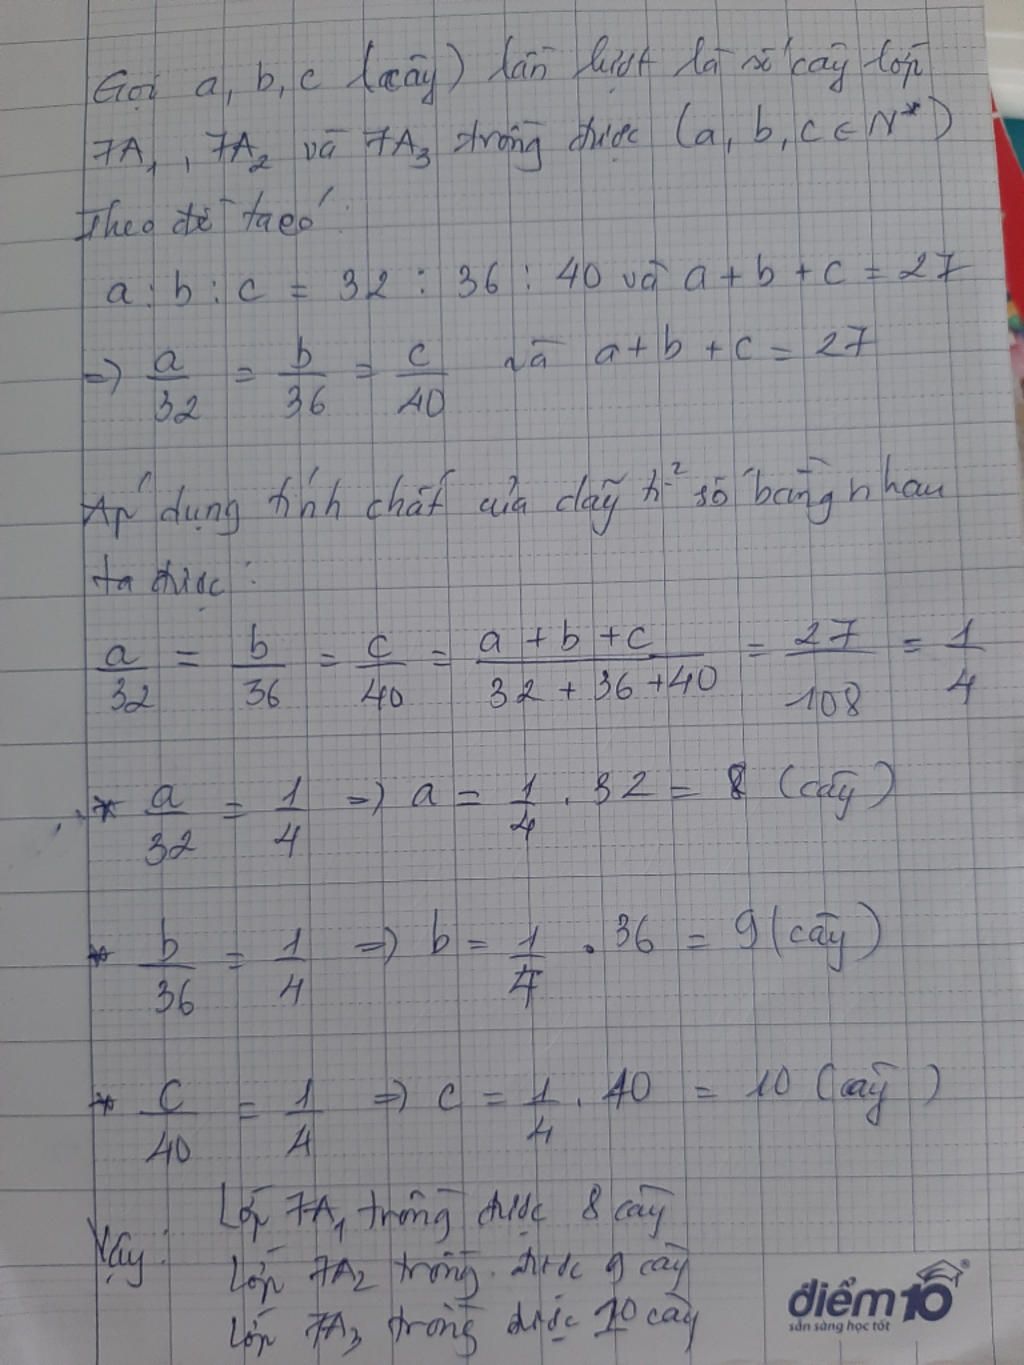 Gọi a, b, c (cây) lần lượt là số cây lớp
7A₁, 7A₂ và 7A₃ trồng được (a, b, c ∈ N*)
Theo đề ta có :
a : b : c = 32 : 36 : 40 và a + b + c = 27
=> a/32 = b/36 = c/40 và a + b + c = 27
Áp dụng tính chất của dãy tỉ số bằng nhau
ta được :
a/32 = b/36 = c/40 = (a + b + c)/(32 + 36 + 40) = 27/108 = 1/4
* a/32 = 1/4 => a = 1/4 . 32 = 8 (cây)
* b/36 = 1/4 => b = 1/4 . 36 = 9 (cây)
* c/40 = 1/4 => c = 1/4 . 40 = 10 (cây)
Vậy : Lớp 7A₁ trồng được 8 cây
Lớp 7A₂ trồng được 9 cây
Lớp 7A₃ trồng được 10 cây
điểm10
sẵn sàng học tốt